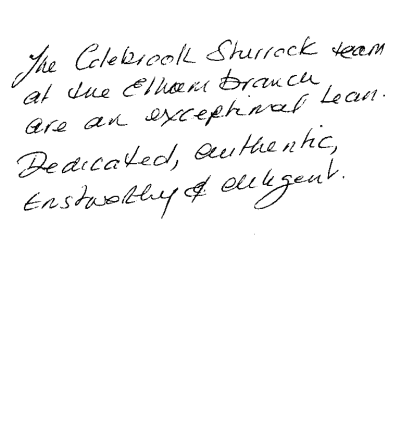 The Colebrook Sturrock team
at the Elham branch
are an exceptional team.
Dedicated, authentic,
trustworthy & diligent.